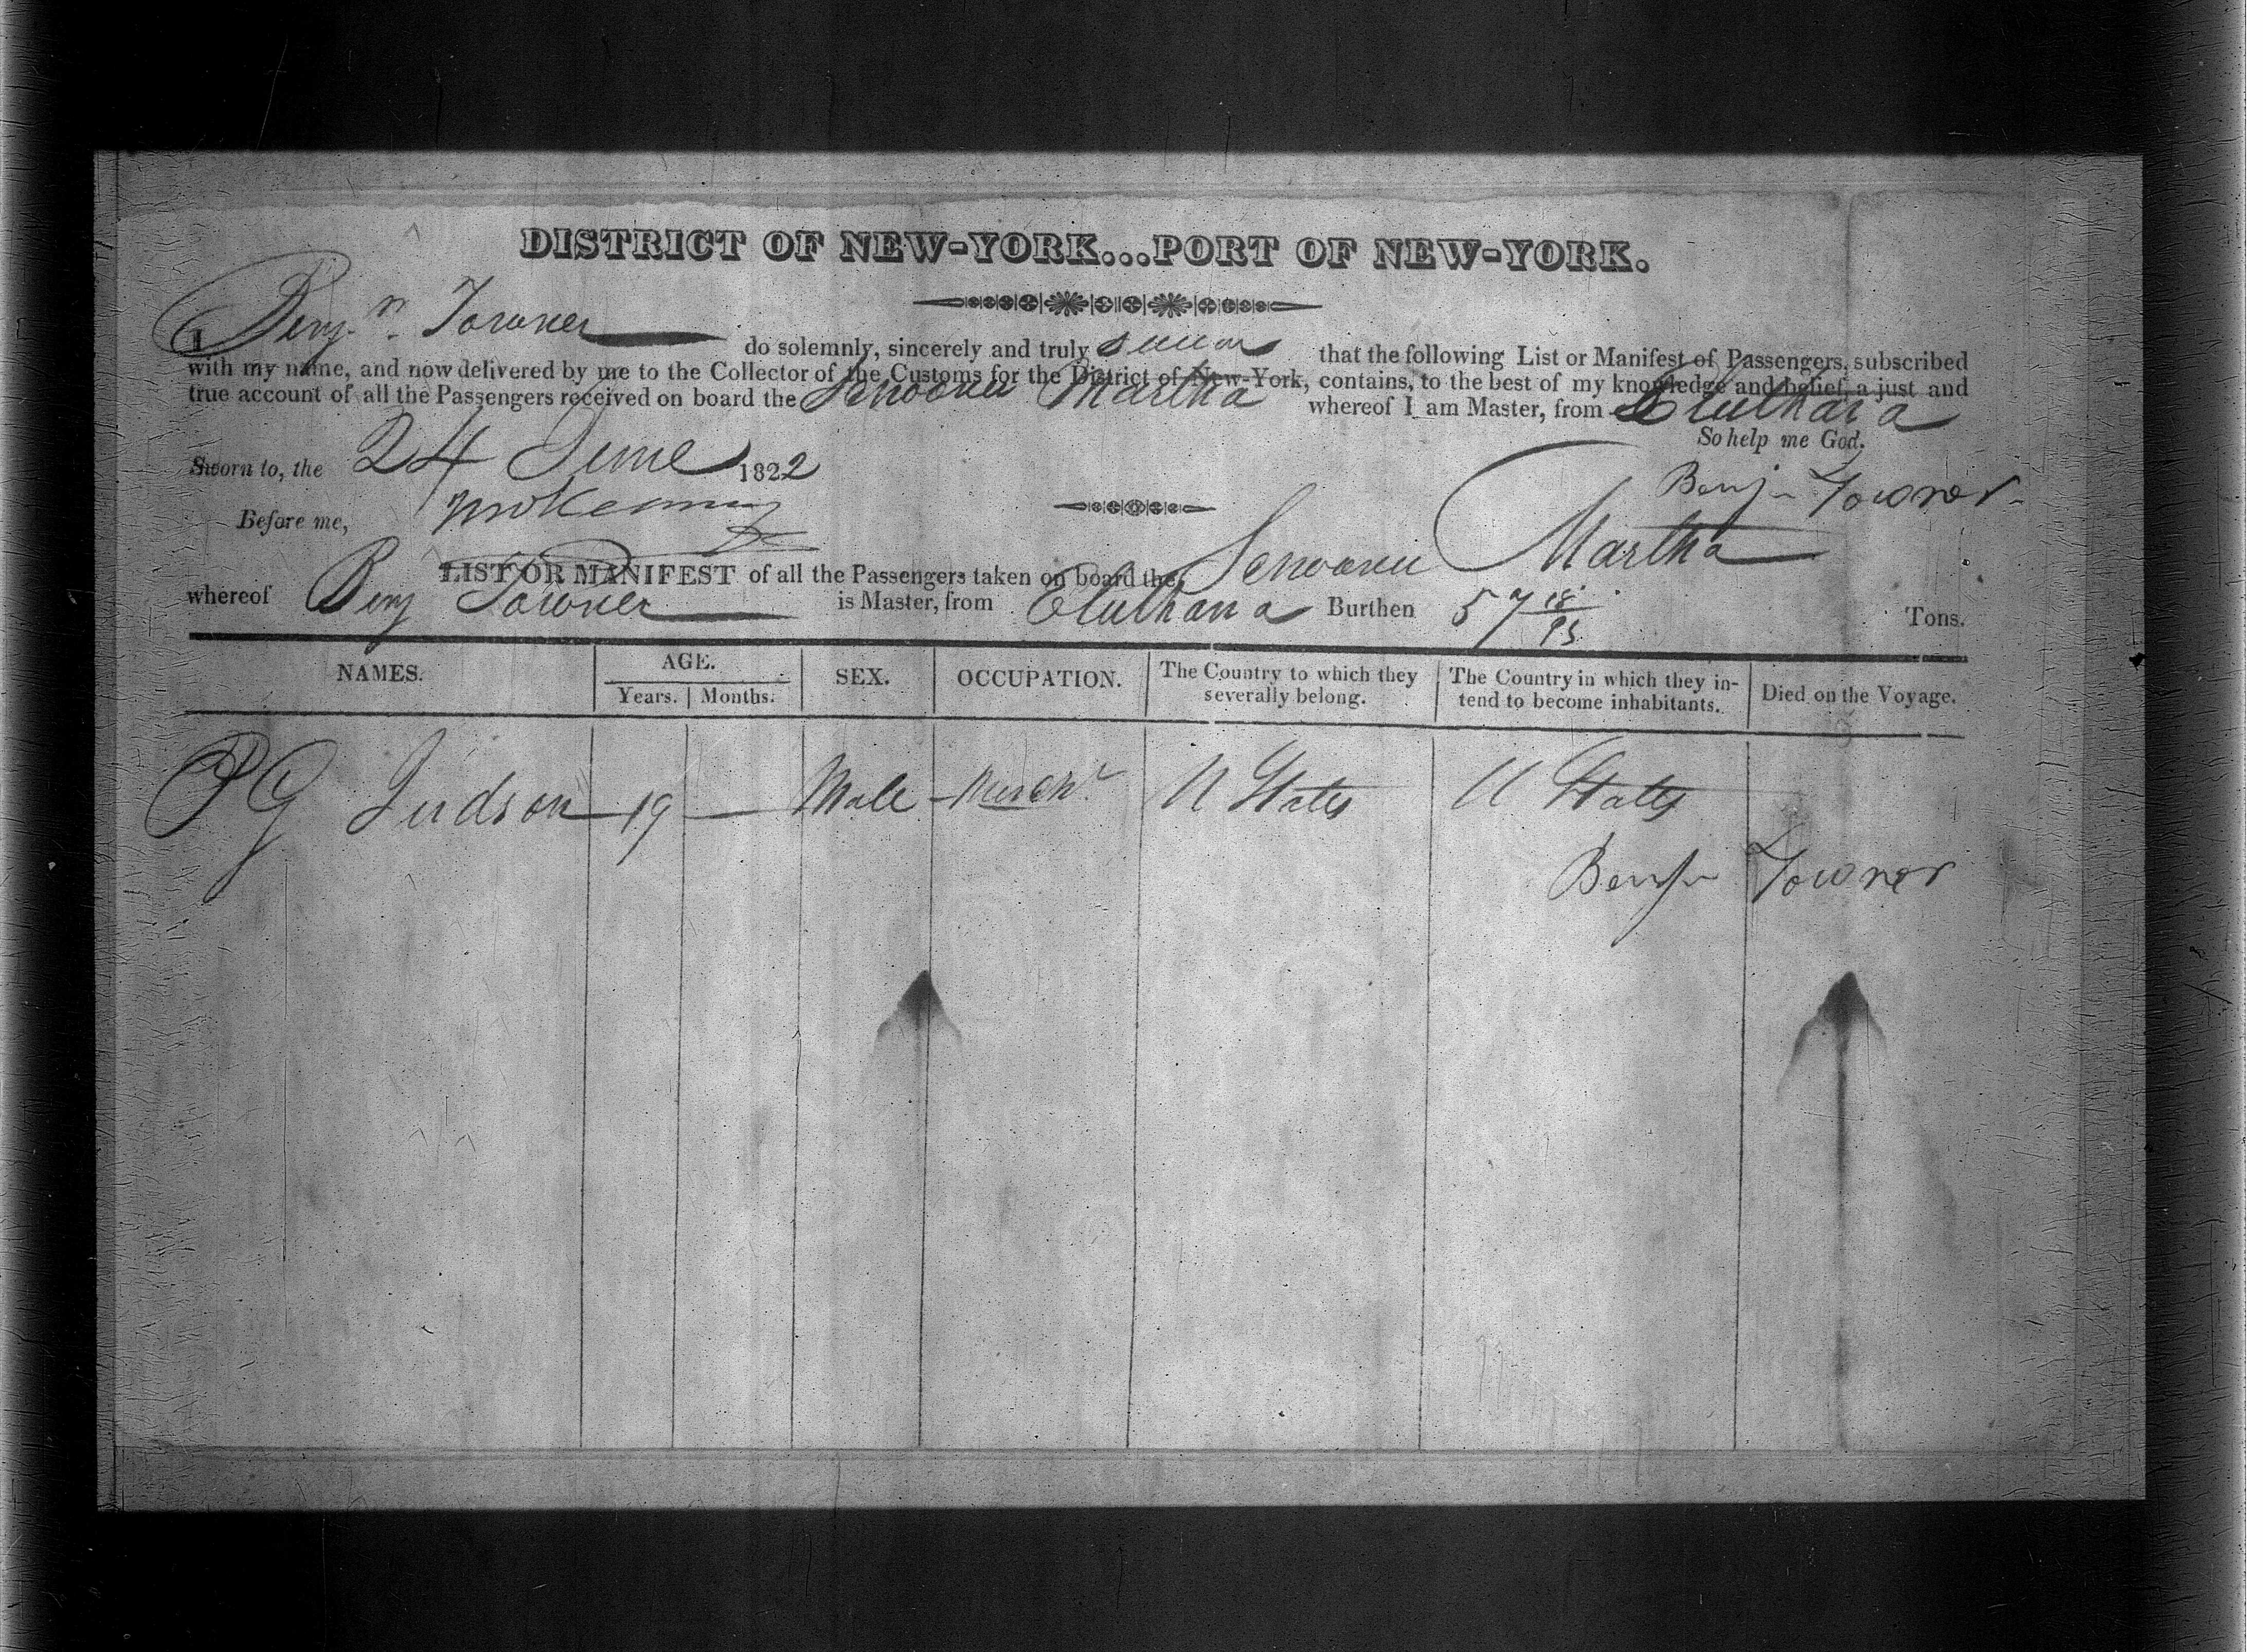 DISTRICT OF NEW-YORK...PORT OF NEW-YORK.
I Benj.n Towner do solemnly, sincerely and truly swear that the following List or Manifest of Passengers, subscribed
with my name, and now delivered by me to the Collector of the Customs for the District of New-York, contains, to the best of my knowledge and belief, a just and
true account of all the Passengers received on board the Schooner Martha whereof I am Master, from Eluthara
So help me God.
Sworn to, the 24 June 1822
Benjn Towner
Before me,
LIST OR MANIFEST of all the Passengers taken on board the Schooner Martha
whereof Benj Towner is Master, from Eluthara Burthen 57 18/95 Tons.
NAMES. AGE. SEX. OCCUPATION. The Country to which they severally belong. The Country in which they in-tend to become inhabitants. Died on the Voyage.
Years. Months.
P G Judson 19 — Male Merch.t U States U States
Benjn Towner